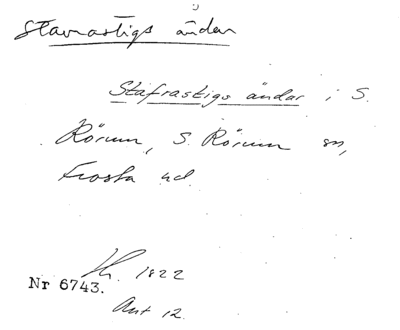 Stavrastigs ändar
Stafrastigs ändar i S.
Rörum, S. Rörum sn,
Frosta hd.
1822
Nr 6743.
Akt 12.